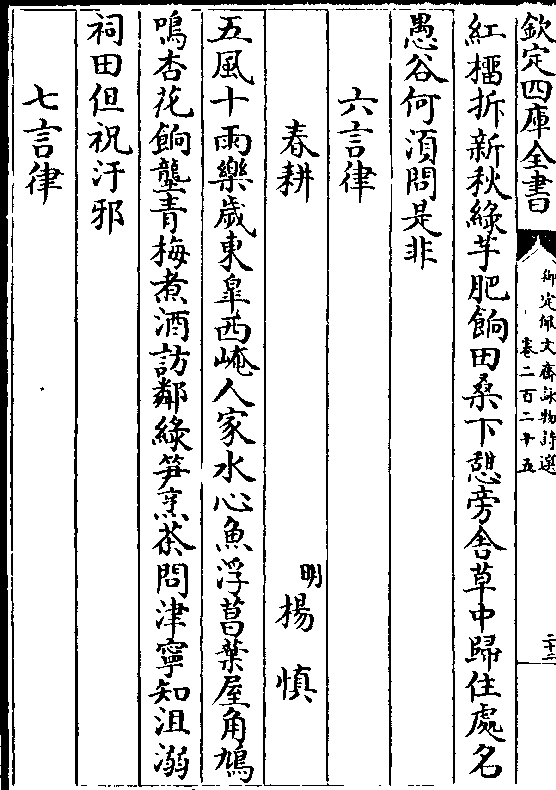 欽定四庫全書
御定佩文齋詠物詩選
卷二百二十五
二十二
紅櫺拆新秋綠芋肥餉田桑下憩旁舍草中歸住處名
愚谷何須問是非
六言律
春耕
明楊慎
五風十雨樂歲東臯西崦人家水心魚浮菖葉屋角鳩
鳴杏花餉壟青梅煮酒訪鄰綠笋烹茶問津寧知沮溺
祠田但祝汙邪
七言律